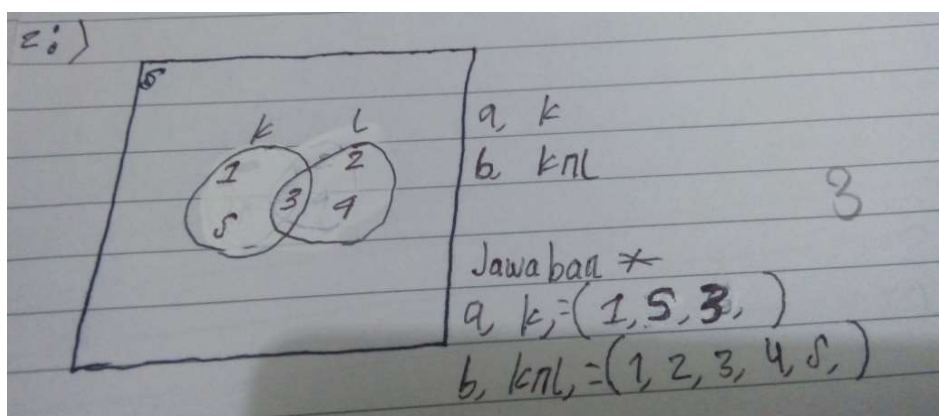 2:)
S
K L
1 2
3
5 4
a, K
b, K∩L
3
Jawaban *
a, K,=(1,5,3, )
b, K∩L,=(1,2,3,4,5,)